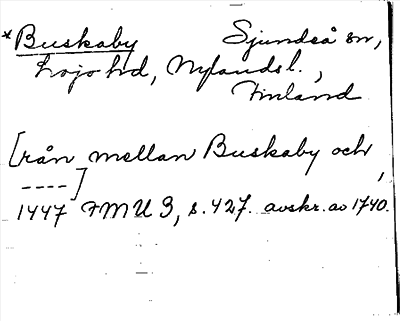 *Buskaby Sjundeå sn,
Lojo hd, Nylands l.,
Finland
[rån mellan Buskaby och
----] ,
1447 FMU 3, s.427. avskr. av 1740.